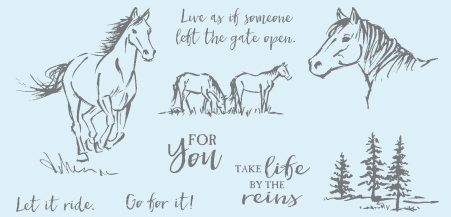 Live as of someone
left the gate open.
FOR
You
TAKE life
BY THE
reins
Let it ride.
Go for it!